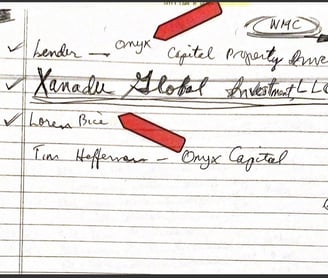 WMC
Lender — Onyx Capital Property Inve
Xanadu Global Investment, LLC
Loren Bice
Tim Heffernan — Onyx Capital